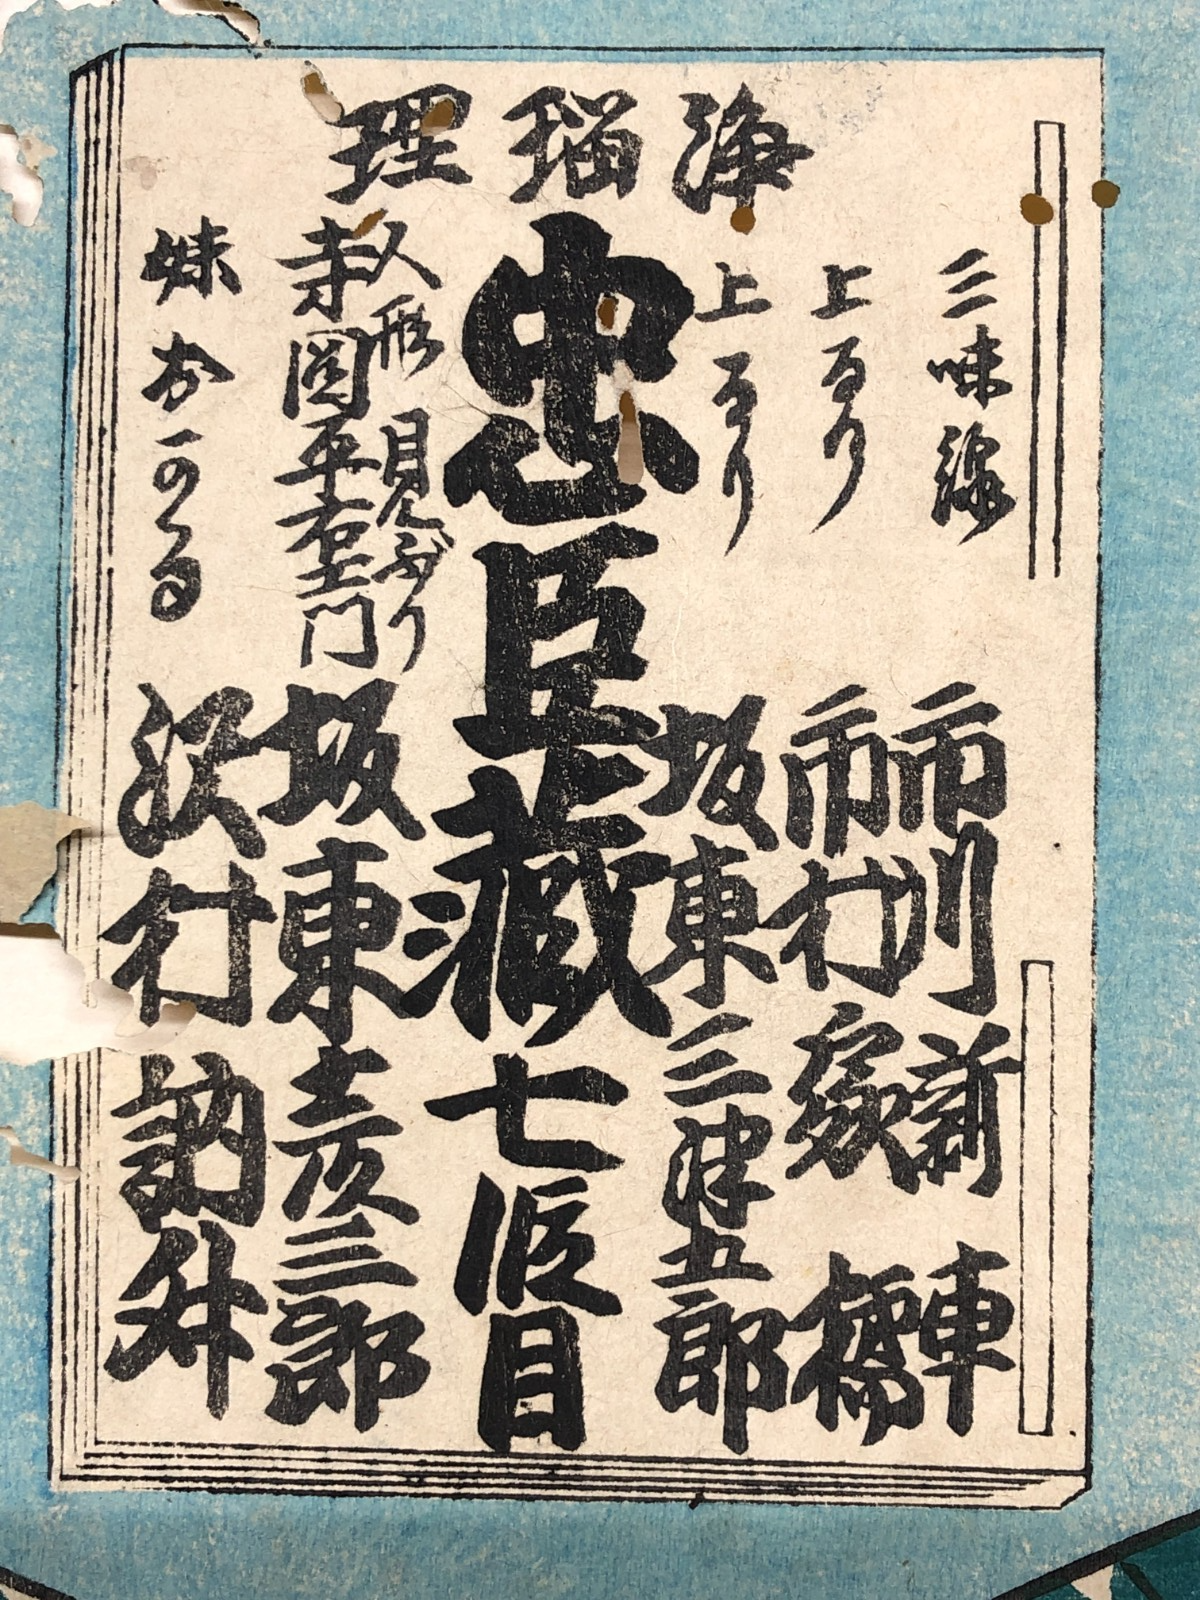 浄瑠理
三味線 市川新車
上るり 市村家橘
上るり 坂東三津五郎
忠臣蔵 七段目
人形見ぶり
寺岡平右エ門 坂東彦三郎
妹おかる 沢村訥升